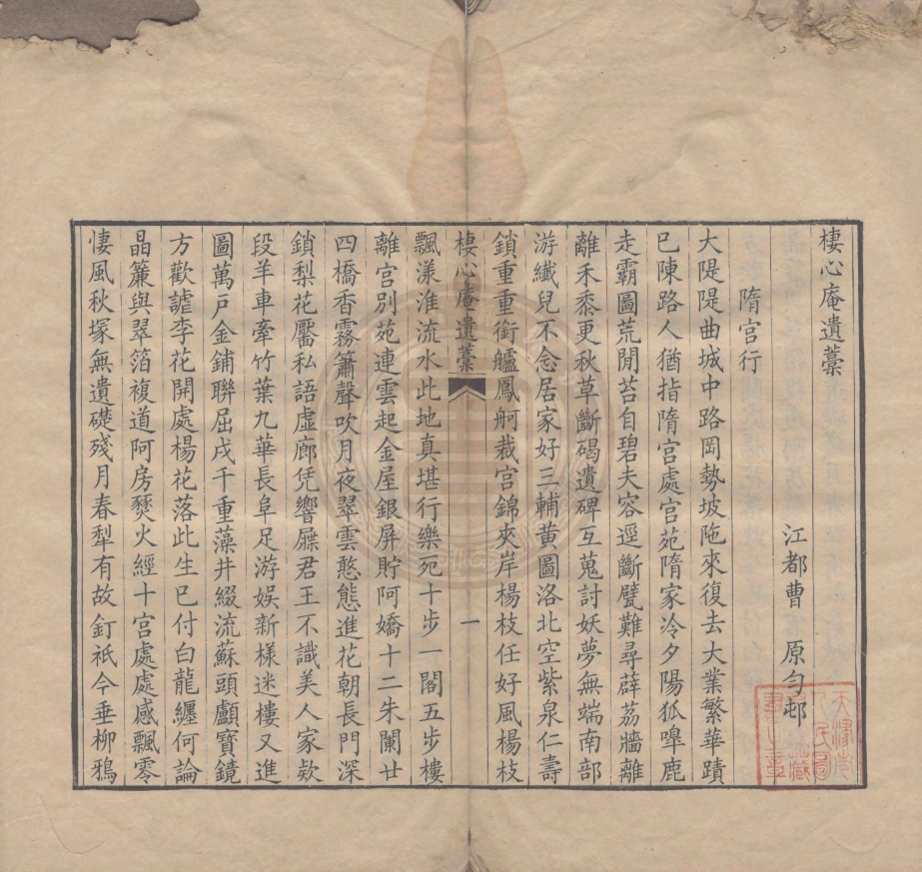 棲心庵遺藁
江都曹 原勻邨
隋宮行
大隄隄曲城中路岡勢坡陁來復去大業繁華蹟
已陳路人猶指隋宮處宮苑隋家冷夕陽狐嘷鹿
走霸圖荒閒苔自碧夫容逕斷甓難尋薜荔牆離
離禾黍更秋草斷碣遺碑互蒐討妖夢無端南部
游纖兒不念居家好三輔黃圖洛北空紫泉仁壽
鎖重重銜艫鳳舸裁宮錦夾岸楊枝任好風楊枝
棲心庵遺藁 一
飄漾淮流水此地真堪行樂死十步一閣五步樓
離宮別苑連雲起金屋銀屏貯阿嬌十二朱闌廿
四橋香霧簫聲吹月夜翠雲憨態進花朝長門深
鎖梨花靨私語虛廊凭響屧君王不識美人家欵
段羊車牽竹葉九華長阜足游娛新様迷樓又進
圖萬戶金鋪聯屈戌千重藻井綴流蘇頭顱寶鏡
方歡謔李花開處楊花落此生已付白龍纏何論
晶簾與翠箔複道阿房燹火經十宮處處感飄零
悽風秋塚無遺礎殘月春犁有故釘祇今垂柳鴉